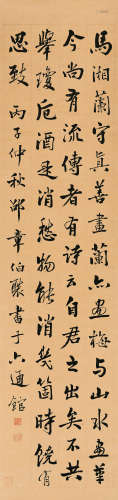 馬湘蘭守真善畫蘭亦畫梅與山水畫筆
今尚有流傳者有詩云自君之出矣不共
舉瓊卮酒是消愁物能消幾箇時饒有
思致 丙子仲秋邵章伯褧書于通館